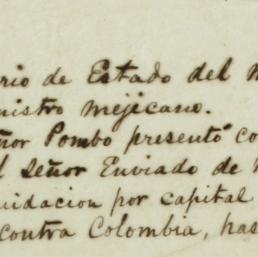 rio de Estado del M
nistro mejicano.
ñor Pombo presentó co
l señor Enviado de
uidacion por capital
contra Colombia, has